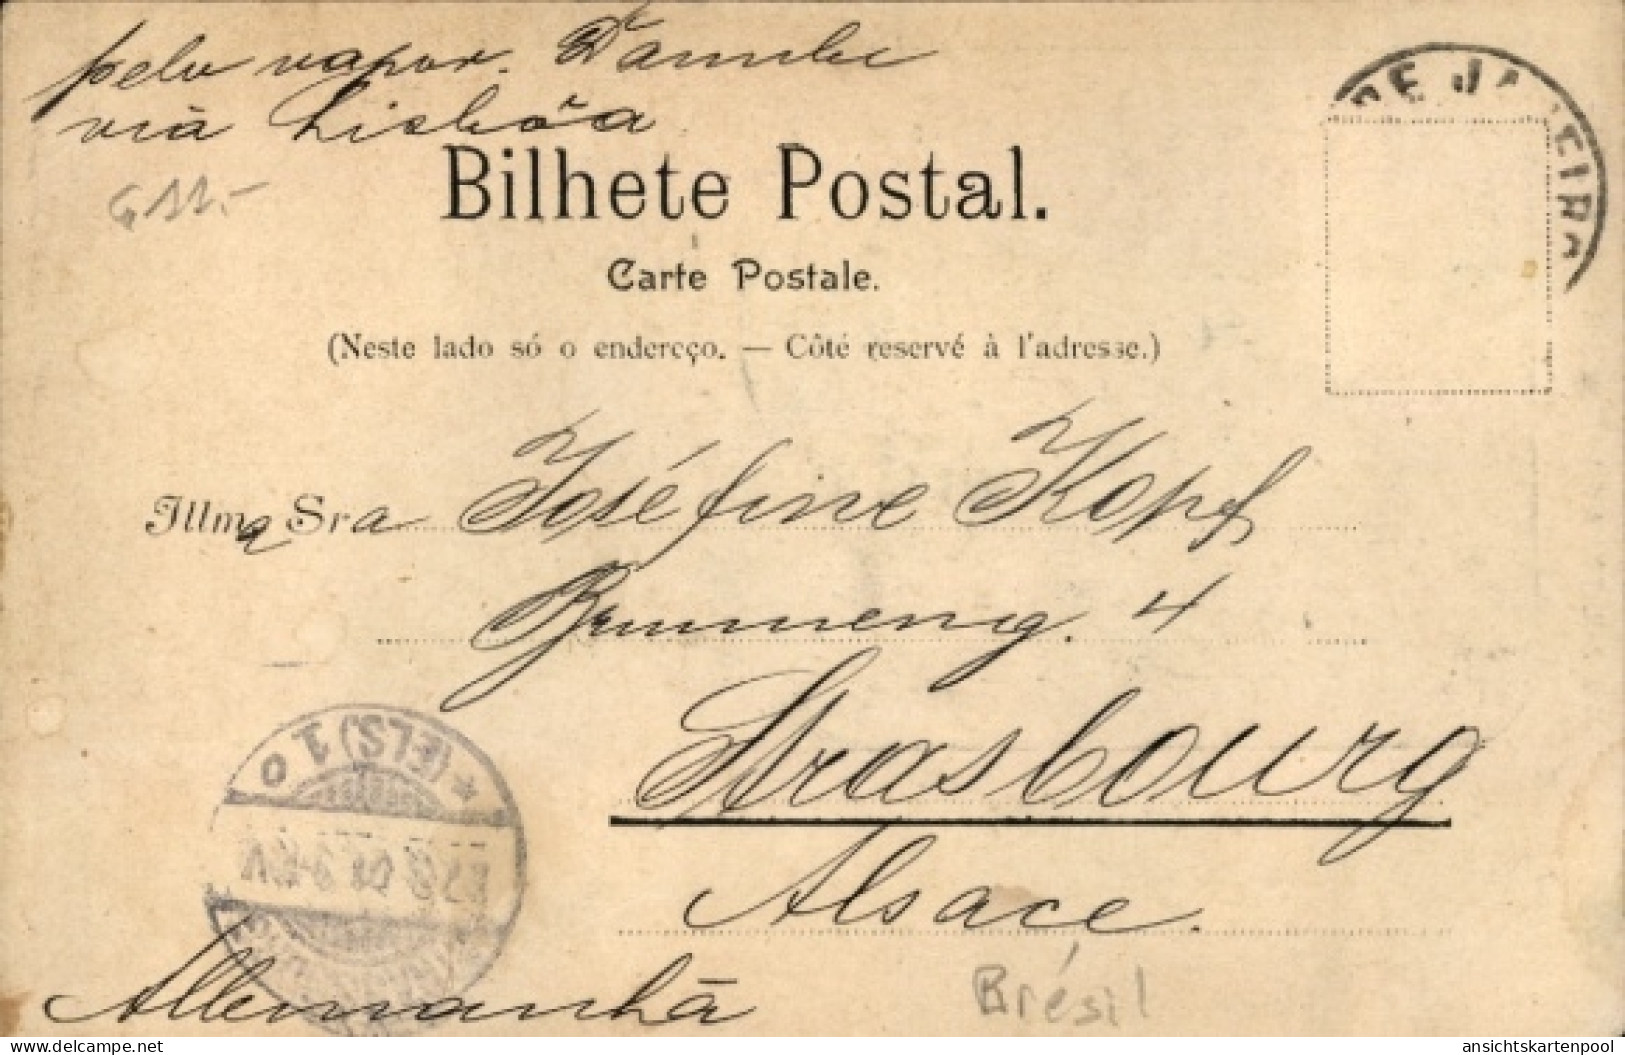 pelo vapor. Danube
vià Lisbôa
G 11.-
DE JA EIRO
Bilhete Postal.
Carte Postale.
(Neste lado só o endereço. — Côté reservé à l'adresse.)
Illma Sra Joséfine Kopf
Brunneng. 4
Strasbourg
Alsace.
* (ELS) 1 o
Allemanhã
Brésil
www.delcampe.net
ansichtskartenpool